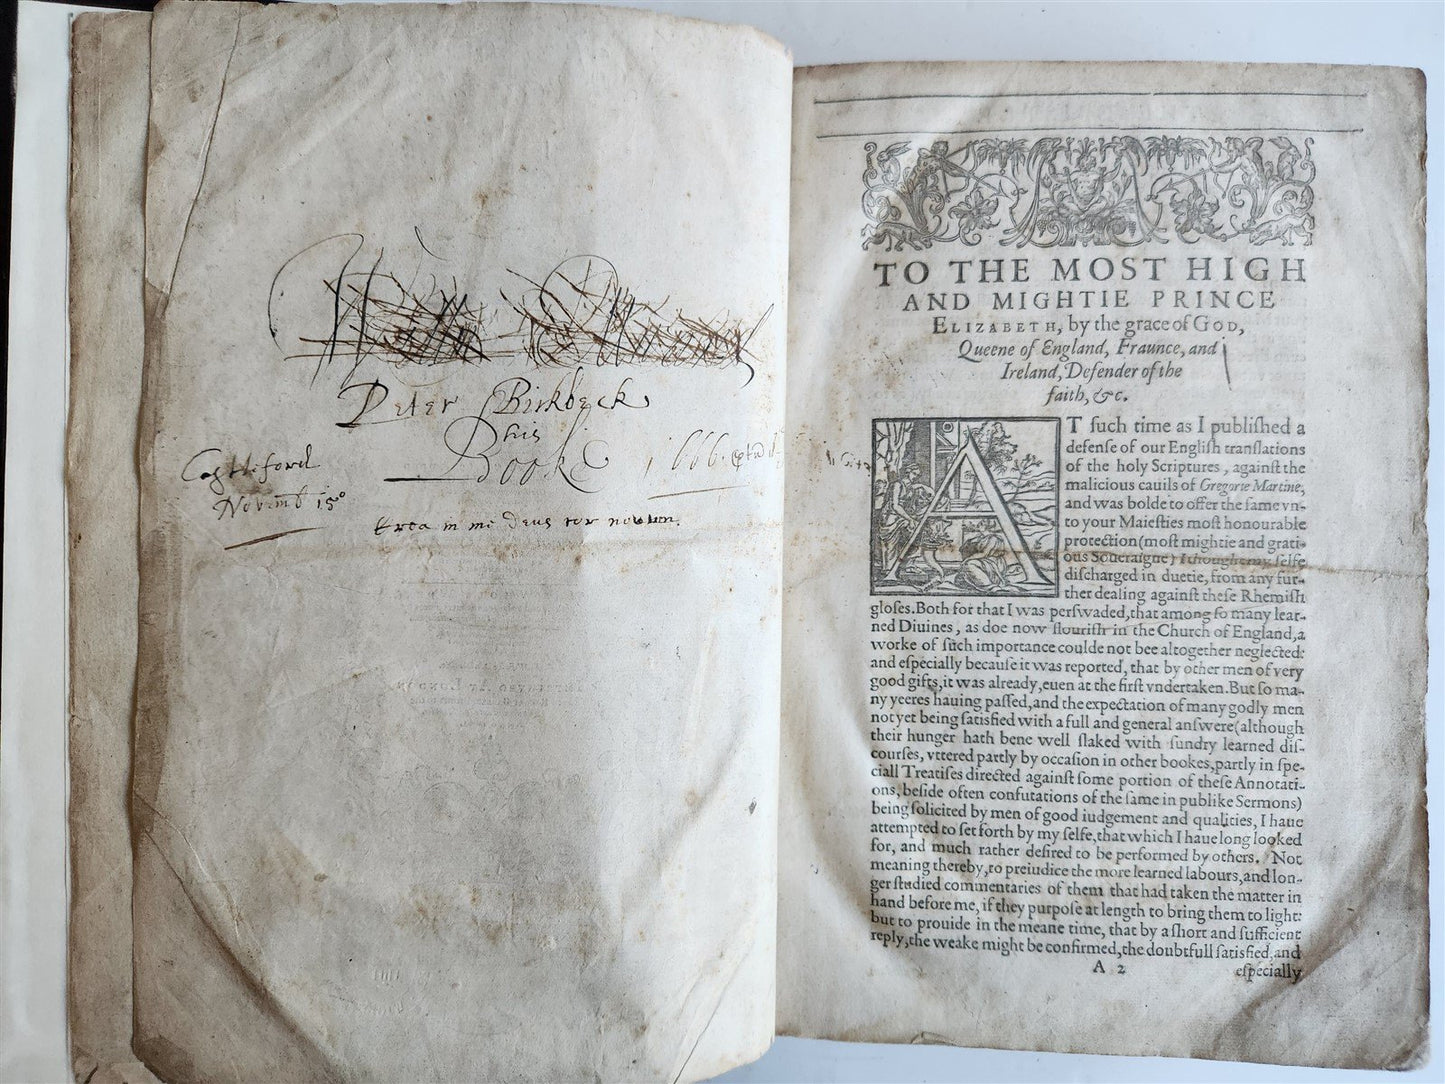 Peter Birkbeck
his
Booke
1666.
Castleford
Novemb 15°
Crea in me Deus cor novum.
TO THE MOST HIGH
AND MIGHTIE PRINCE
ELIZABETH, by the grace of GOD,
Queene of England, Fraunce, and
Ireland, Defender of the
faith, &c.
AT ſuch time as I publiſhed a
defenſe of our Engliſh tranſlations
of the holy Scriptures, againſt the
malicious cauils of Gregorie Martine,
and was bolde to offer the ſame vn-
to your Maieſties moſt honourable
protection (moſt mightie and grati-
ous Soueraigne) I thought my ſelfe
diſcharged in duetie, from any fur-
ther dealing againſt theſe Rhemiſh
gloſes. Both for that I was perſwaded, that among ſo many lear-
ned Diuines, as doe now flouriſh in the Church of England, a
worke of ſuch importance coulde not bee altogether neglected:
and eſpecially becauſe it was reported, that by other men of very
good gifts, it was already, euen at the firſt vndertaken. But ſo ma-
ny yeeres hauing paſſed, and the expectation of many godly men
not yet being ſatisfied with a full and general anſwere (although
their hunger hath bene well ſlaked with ſundry learned diſ-
courſes, vttered partly by occaſion in other bookes, partly in ſpe-
ciall Treatiſes directed againſt ſome portion of theſe Annotati-
ons, beſide often confutations of the ſame in publike Sermons)
being ſolicited by men of good iudgement and qualities, I haue
attempted to ſet forth by my ſelfe, that which I haue long looked
for, and much rather deſired to be performed by others. Not
meaning thereby, to preiudice the more learned labours, and lon-
ger ſtudied commentaries of them that had taken the matter in
hand before me, if they purpoſe at length to bring them to light:
but to prouide in the meane time, that by a ſhort and ſufficient
reply, the weake might be confirmed, the doubtfull ſatisfied, and
A 2
eſpecially